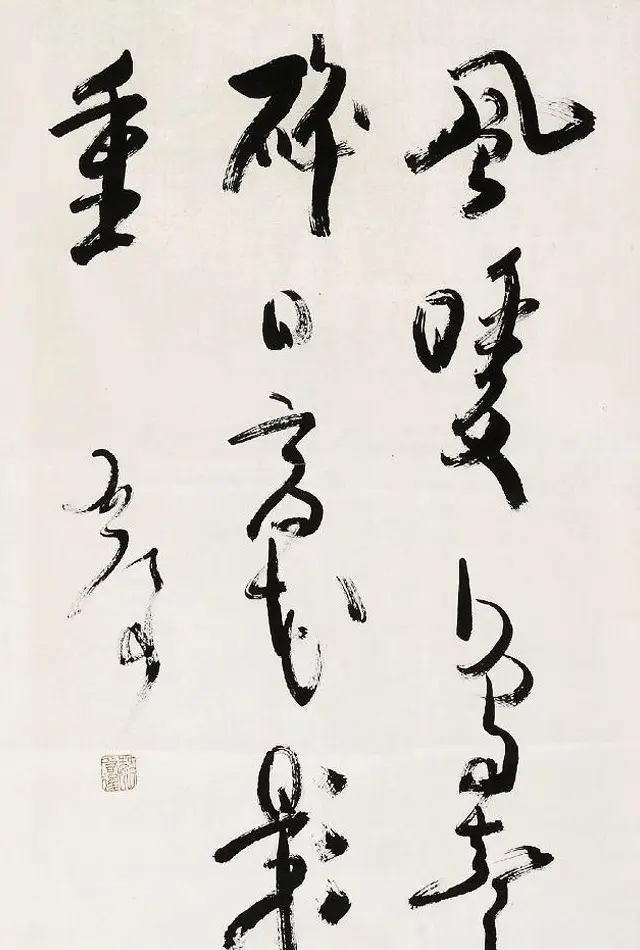 風暖鳥聲
碎日高花影
重